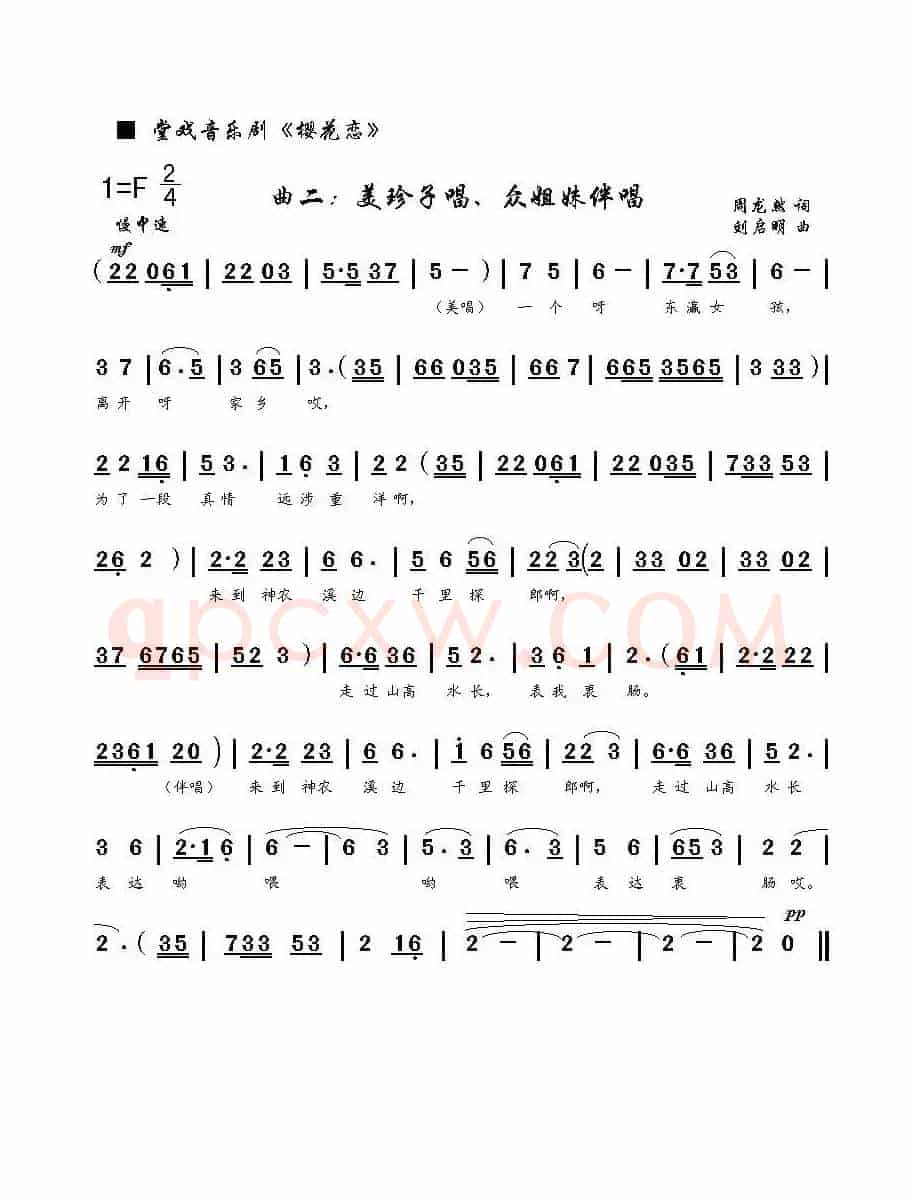 ■ 堂戏音乐剧《樱花恋》
1=F 2/4
曲二：美珍子唱、众姐妹伴唱
周龙然 词
慢中速
刘启明 曲
mf
( 22 061 | 22 03 | 5·5 37 | 5 — ) | 7 5 | 6 — | 7·7 53 | 6 — |
（美唱） 一 个 呀 东 瀛 女 孩，
3 7 | 6·5 | 3 65 | 3·( 35 | 66 035 | 66 7 | 665 3565 | 3 33 ) |
离 开 呀 家 乡 哎，
2 2 16 | 5 3· | 1 6 3 | 2 2 ( 35 | 22 061 | 22 035 | 733 53 |
为 了 一 段 真 情 远 涉 重 洋 啊，
26 2 ) | 2·2 23 | 6 6· | 5 6 56 | 22 3 ( 2 | 33 02 | 33 02 |
来 到 神 农 溪 边 千 里 探 郎 啊，
qpcxw.COM
37 6765 | 52 3 ) | 6·6 36 | 5 2· | 3 6 1 | 2· ( 61 | 2·2 22 |
走 过 山 高 水 长， 表 我 衷 肠。
2361 20 ) | 2·2 23 | 6 6· | 1 6 56 | 22 3 | 6·6 36 | 5 2· |
（伴唱） 来 到 神 农 溪 边 千 里 探 郎 啊， 走 过 山 高 水 长
3 6 | 2·1 6 | 6 — | 6 3 | 5· 3 | 6· 3 | 5 6 | 65 3 | 2 2 |
表 达 呦 喂 呦 喂 表 达 衷 肠 哎。
pp
2 · ( 35 | 733 53 | 2 16 | 2 — | 2 — | 2 — | 2 0 ‖